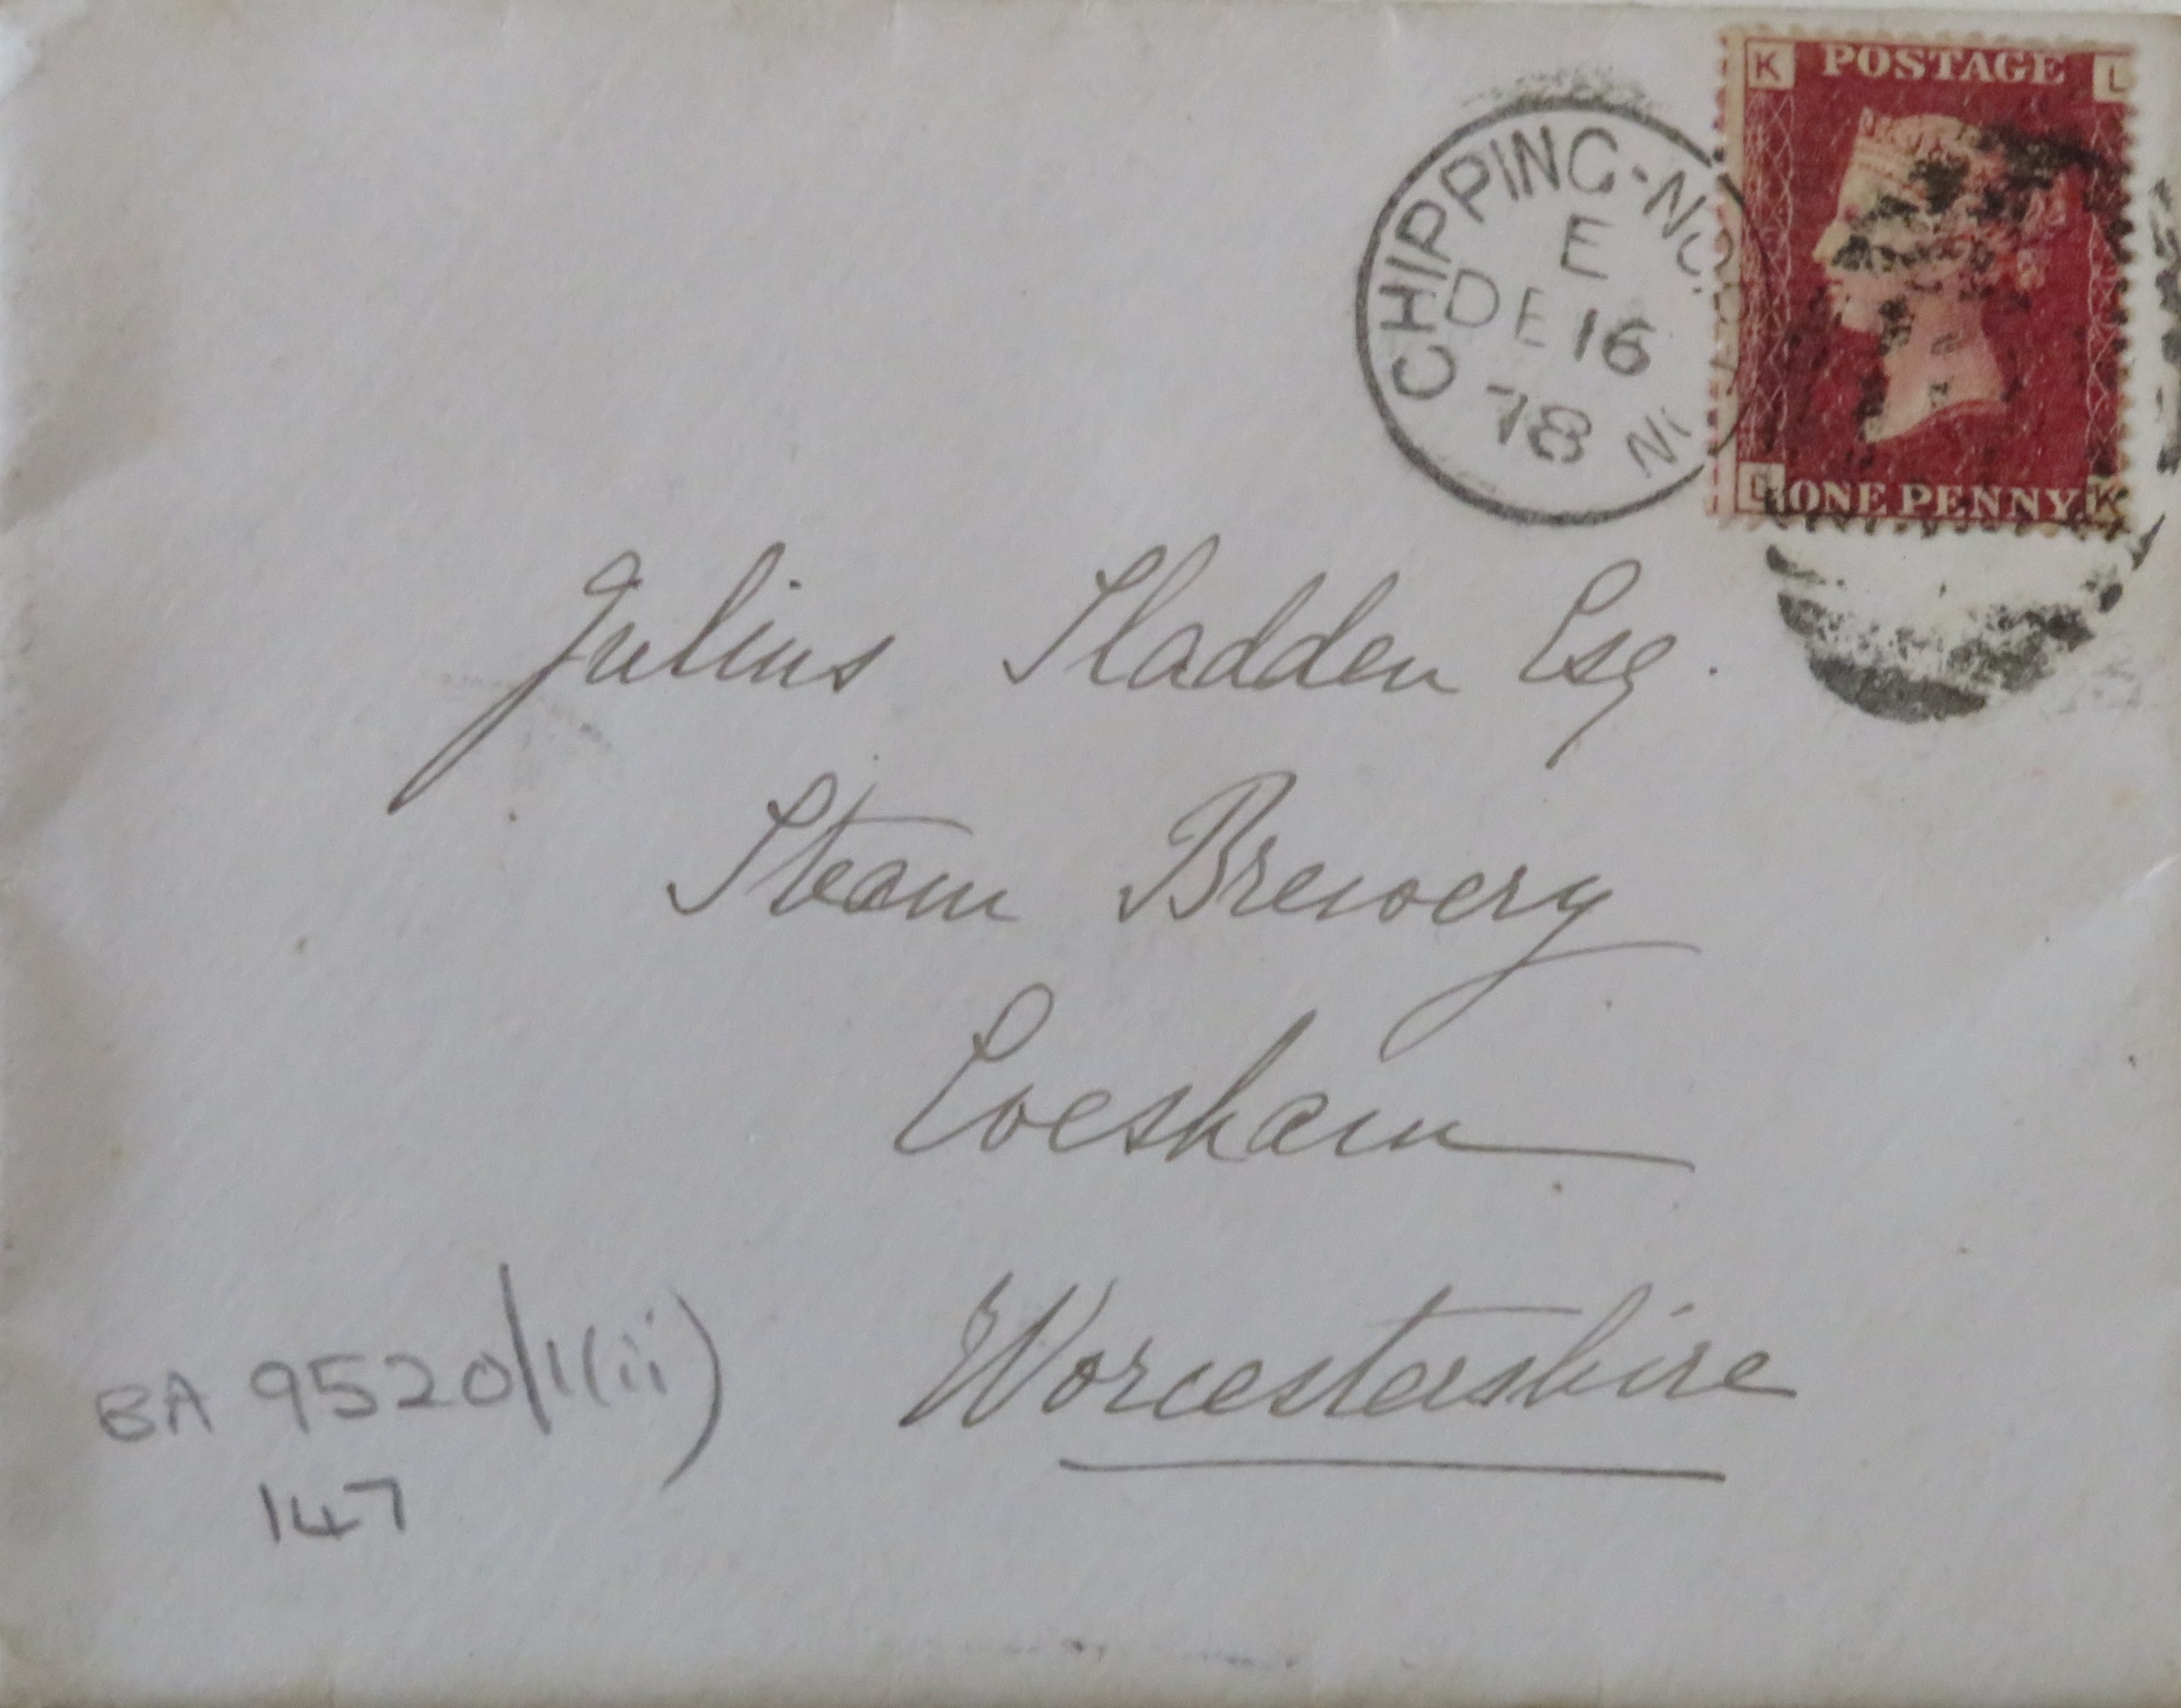 K POSTAGE L
CHIPPING-NO
E
DE 16
78
L ONE PENNY K
Julius Sladden Esq.
Steam Brewery
Evesham
Worcestershire
BA 9520/1(ii)
147